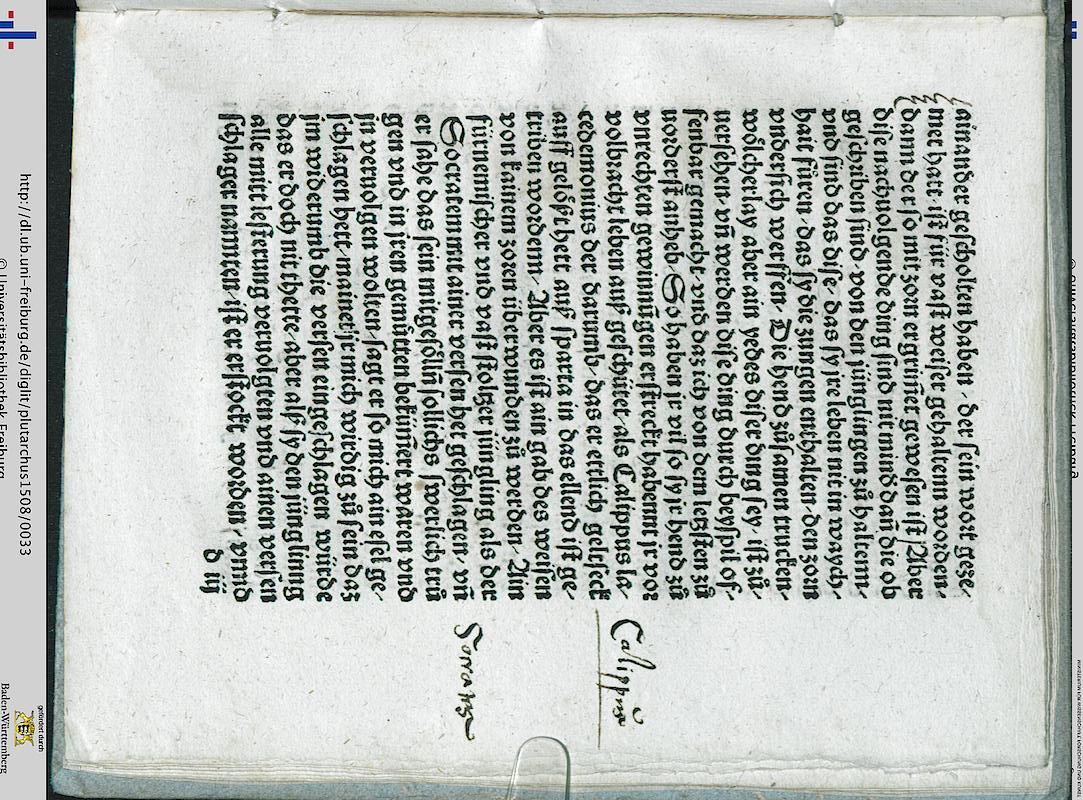 ainander gescholten haben / der sein wort geze
met hatt / ist für vast weiser gehaltenn worden /
dann der so mit zorn ergrimet gewesen ist / Aber
dise nachuolgende ding sind nit mind dañ die ob
geschriben sind / von den jünglingen zů haltenn /
vnd sind das dise / das sy jre leben nit in waych
hait füren / das sy die zungen enthalten / den zorn
vndersich werffen / Die hend zů samen trucken /
wölcherlay aber ain yedes diser ding sey / ist zů
uersehen / vñ werden dise ding durch beyspil of /
fenbar gemacht / vnd daz ich von dem letsten zů
uorderst anheb / So haben jr vil so sy jr hend zů
vnrechten gewinnũgen erstreckt habennt jr vor
volbracht leben auß geschütet / als Calippus la /
cedemonius der darumb / das er ettlich geltseck
auff gelößt hett auß sparta in das ellend ist ge /
triben wordenn / Aber es ist ain gab des weisen
von kainem zoren überwunden zů werden / Ain
fürnemischer vnd vast stoltzer jüngling / als der
Socratem mit ainer versen het geschlagen / vñ
er sahe das sein mitgesölln̄ solichs swerlich trů
gen vnd in jren gemütten bekũmert waren vnd
jn veruolgen wolten / sagt er so mich ain esel ge /
schlagen hett / mainet jr mich wirdig zů sein daz
jm widerumb die versen eingeschlagen würde
das er doch nit therte / aber alß sy den jüngling
alle mitt lesterung veruolgten vnd ainen versen
schlager namiten / ist er erstöckt worden / vnnd
d iij
Calippus
Socrates
http://dl.ub.uni-freiburg.de/diglit/plutarchus1508/0033
© Universitätsbibliothek Freiburg
gefördert durch
Baden-Württemberg